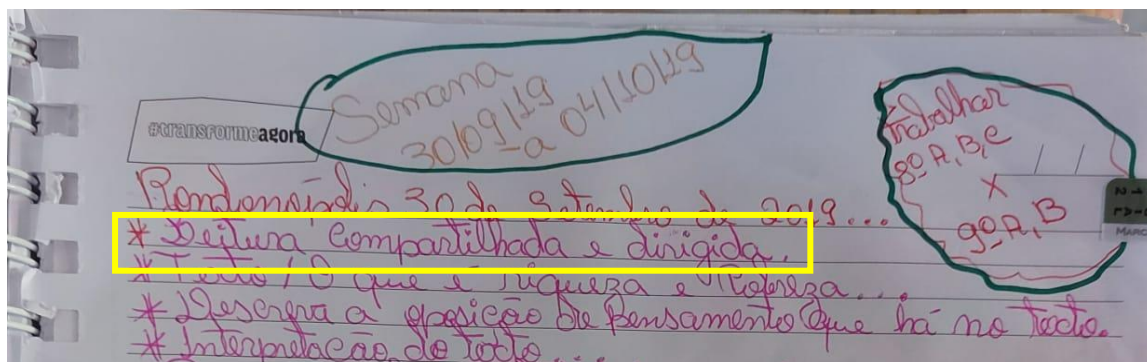 Semana
30/09/19
a 04/10/19
#transformeagora
trabalhar
8º A, B, C
X
9º A, B
MARC
Rondonópolis 30 de Setembro de 2019...
* Leitura Compartilhada e dirigida.
* Texto / O que é riqueza e Pobreza...
* Descreva a oposição de pensamento que há no texto.
* Interpretação do texto...